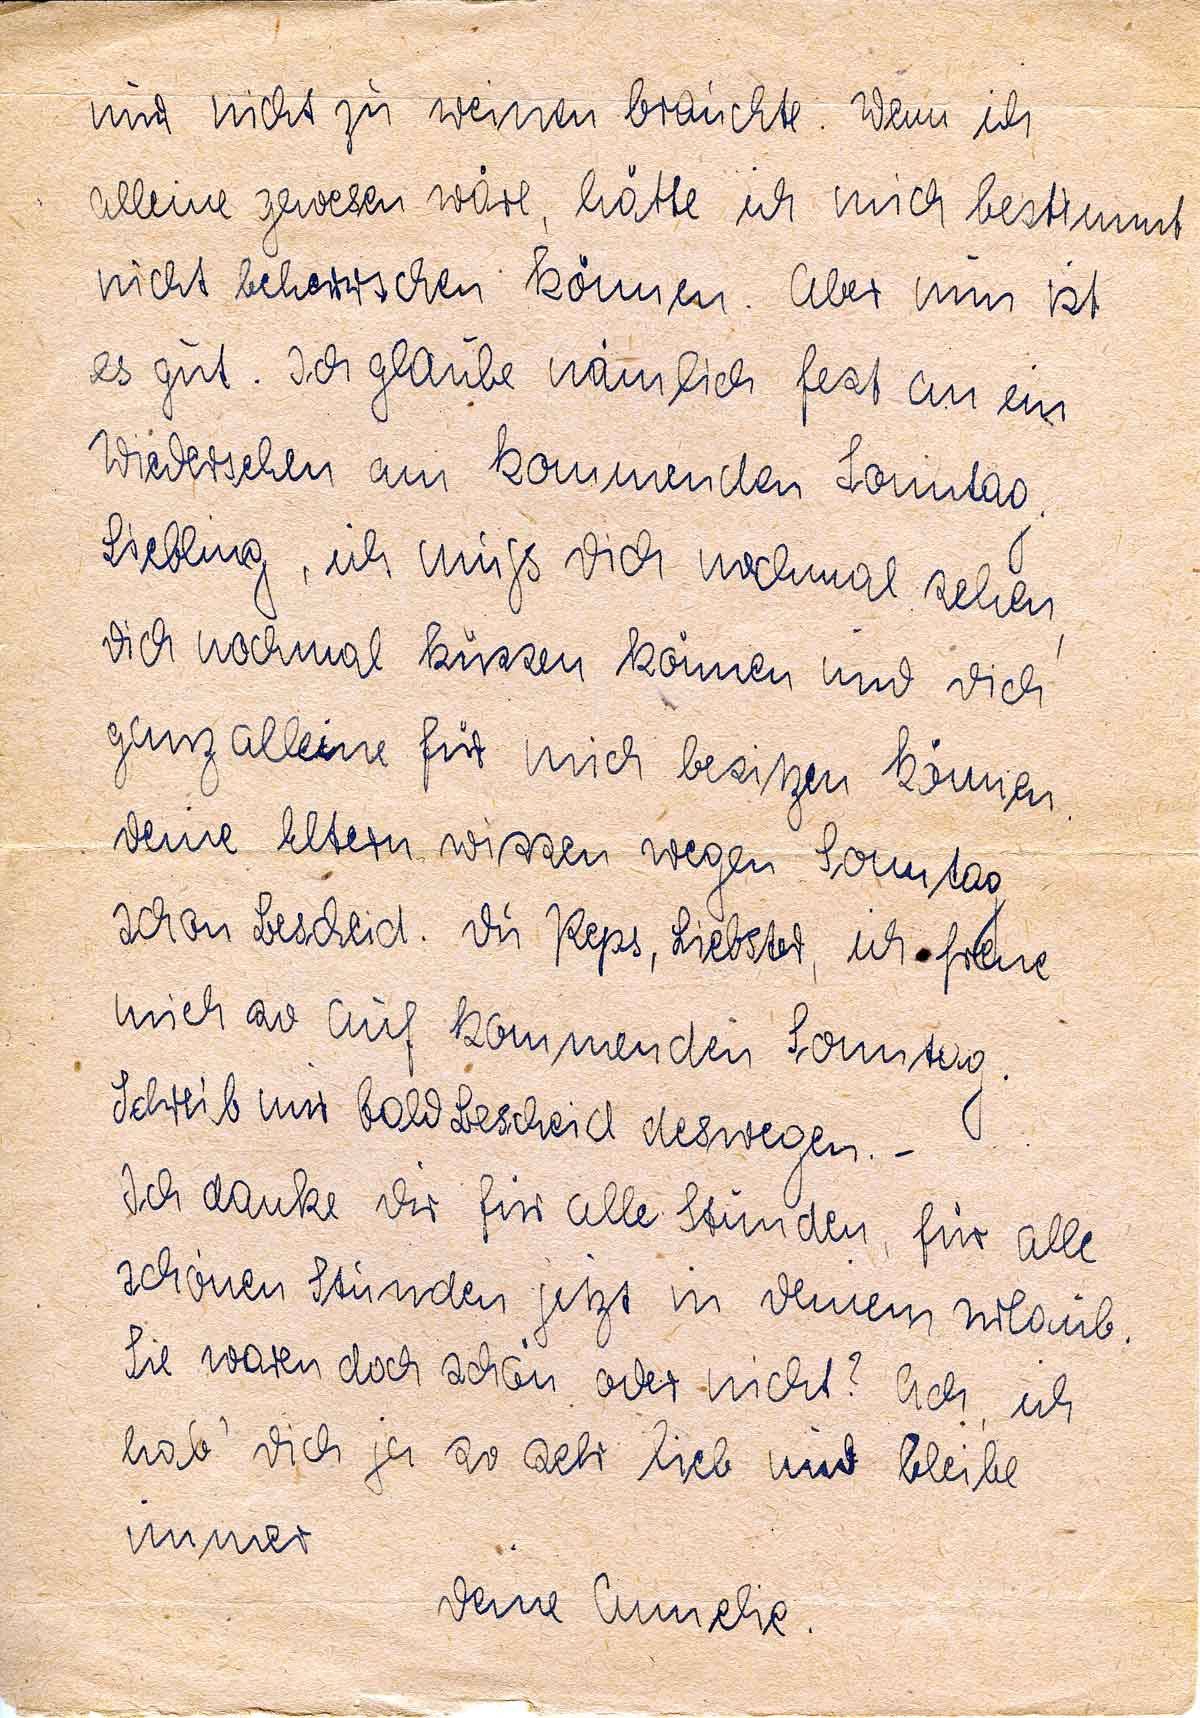 und nicht zu weinen brauchte. Wenn ich
alleine gewesen wäre, hätte ich mich bestimmt
nicht beherrschen können. Aber nun ist
es gut. Ich glaube nämlich fest an ein
Wiedersehen am kommenden Sonntag.
Liebling, ich muss dich nochmal sehen,
dich nochmal küssen können und dich
ganz alleine für mich besitzen können.
Deine Eltern wissen wegen Sonntag
schon Bescheid. Du Keps, Liebster, ich freue
mich so auf kommenden Sonntag.
Schreib mir bald Bescheid deswegen. –
Ich danke dir für alle Stunden, für alle
schönen Stunden jetzt in deinem Urlaub.
Sie waren doch schön oder nicht? Ach, ich
hab' dich ja so sehr lieb und bleibe
immer
deine Annelie.